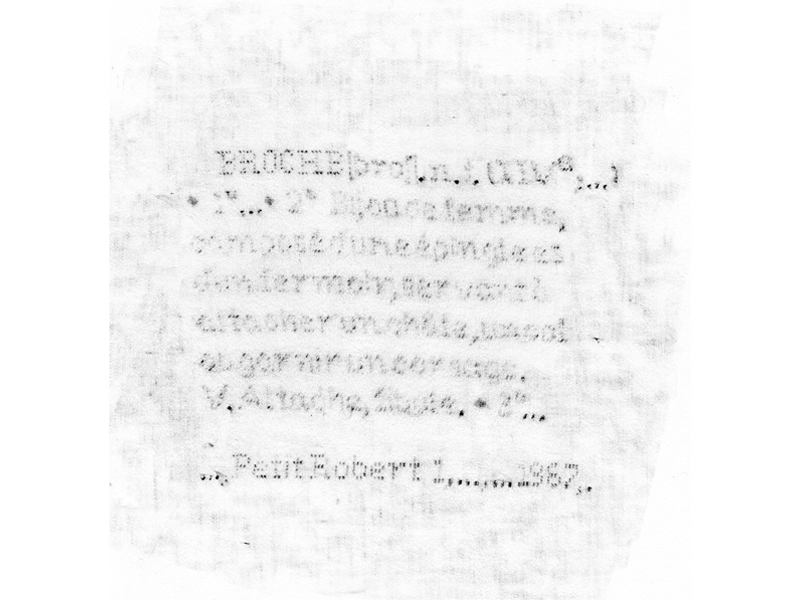 BROCHE [broʃ]. n. f. (XIIᵉ...;
• 1°... • 2° Bijou de femme,
composé d'une épingle et
d'un fermoir, servant à
attacher un châle, un col
ou garnir un corsage.
V. Attache, fibule. • 3°...
... Petit Robert 1, ... 1967.